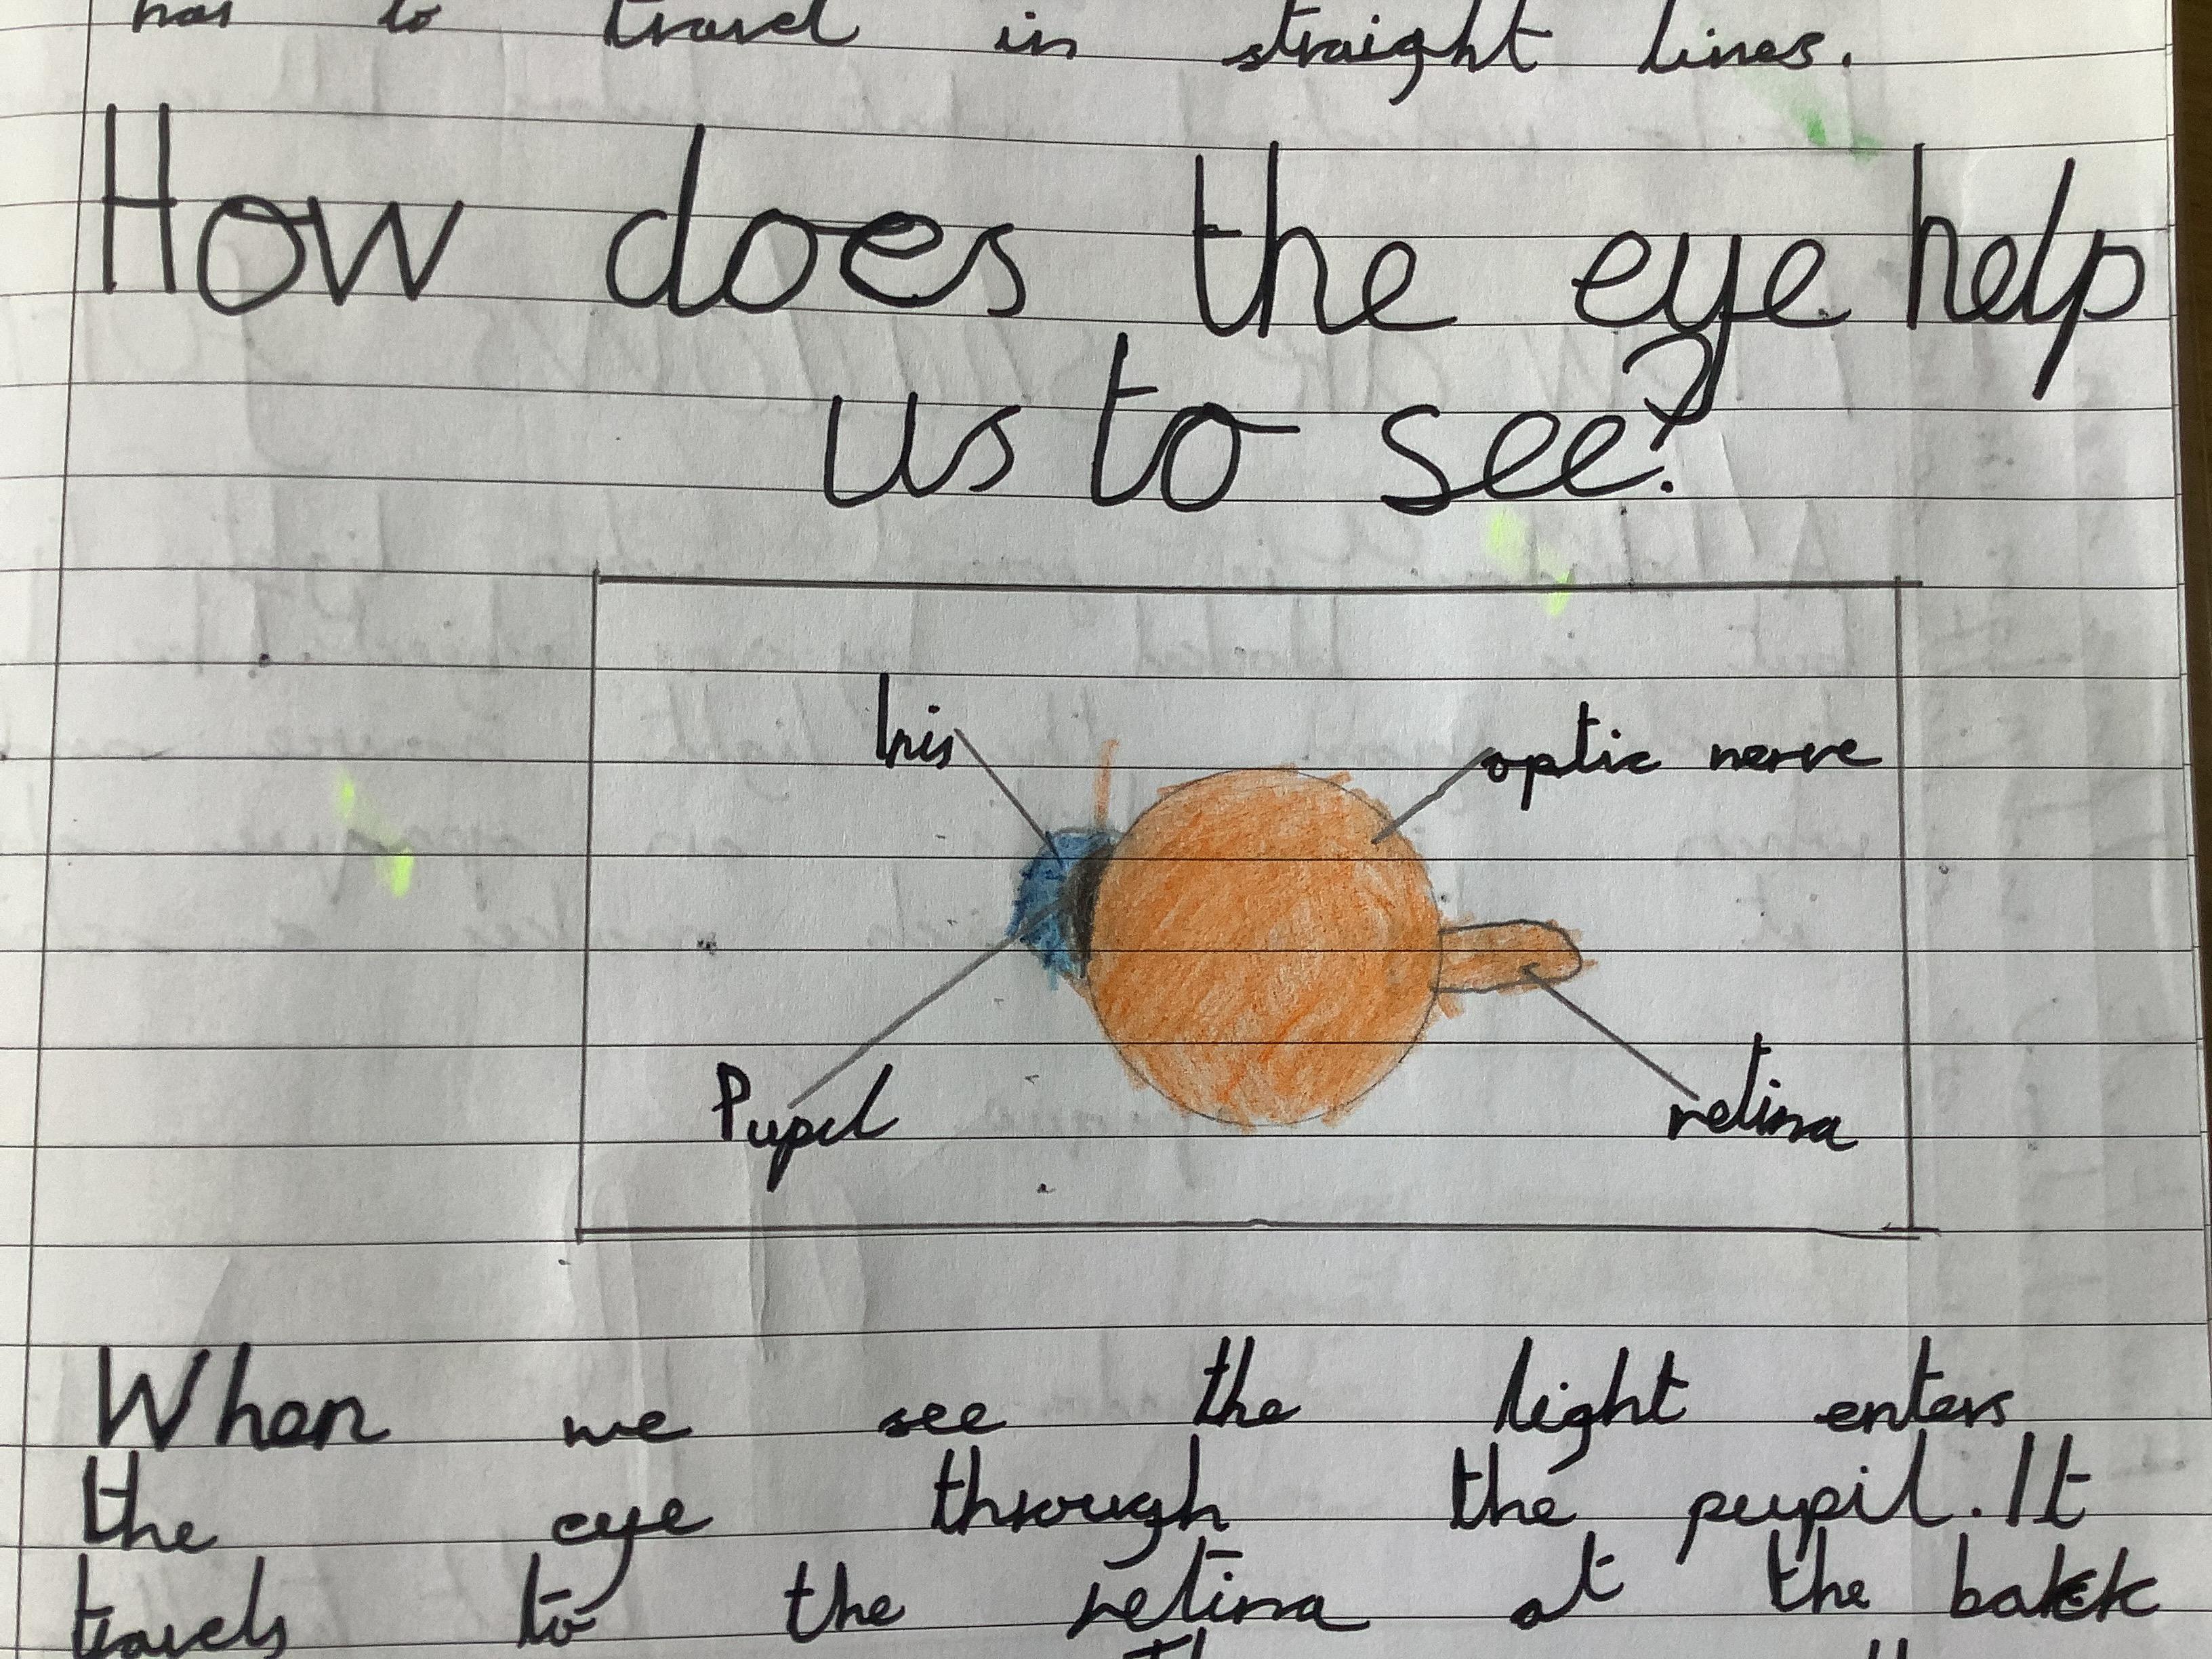 has to travel in straight lines.
How does the eye help
us to see?
Iris
optic nerve
Pupil
retina
When we see the light enters
the eye through the pupil. It
travels to the retina at the back